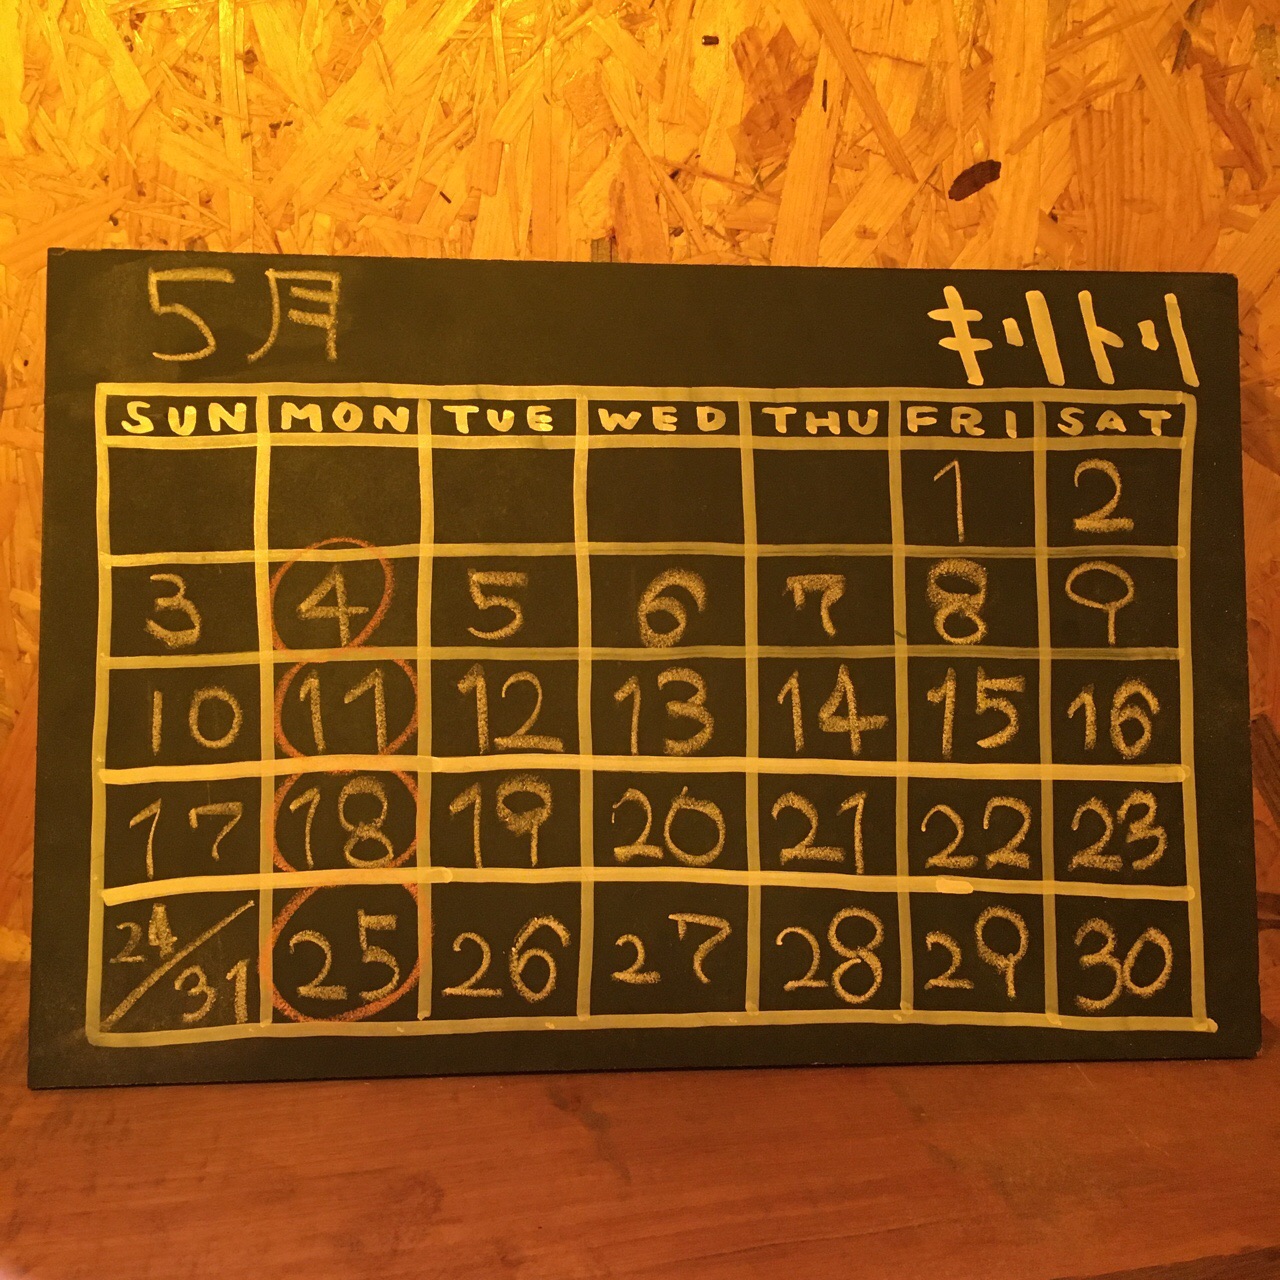 5月 キリトリ
SUN MON TUE WED THU FRI SAT
1 2
3 4 5 6 7 8 9
10 11 12 13 14 15 16
17 18 19 20 21 22 23
24/31 25 26 27 28 29 30